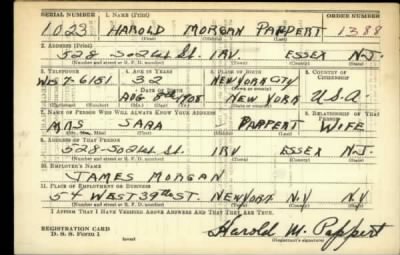 SERIAL NUMBER 1. NAME (Print) ORDER NUMBER
1023 HAROLD MORGAN PAPPERT 1388
(First) (Middle) (Last)
2. ADDRESS (Print)
IRV ESSEX N.J.
(Number and street or R. F. D. number) (Town) (County) (State)
3. TELEPHONE 4. AGE IN YEARS 5. PLACE OF BIRTH 6. COUNTRY OF CITIZENSHIP
32 NEW YORK CITY
DATE OF BIRTH (Town or county)
1908 NEW YORK U.S.A.
(Exchange) (No.) (Mo.) (Day) (Yr.) (State or country)
7. NAME OF PERSON WHO WILL ALWAYS KNOW YOUR ADDRESS 8. RELATIONSHIP OF THAT PERSON
MRS SARA PAPPERT WIFE
(Mr., Mrs., Miss) (First) (Middle) (Last)
9. ADDRESS OF THAT PERSON
IRV ESSEX N.J.
(Number and street or R. F. D. number) (Town) (County) (State)
10. EMPLOYER'S NAME
JAMES MORGAN
11. PLACE OF EMPLOYMENT OR BUSINESS
WEST 39th ST. NEW YORK N.Y N.Y
(Number and street or R. F. D. number) (Town) (County) (State)
I AFFIRM THAT I HAVE VERIFIED ABOVE ANSWERS AND THAT THEY ARE TRUE.
REGISTRATION CARD
D. S. S. Form 1 (over) Harold M. Pappert
(Registrant's signature)